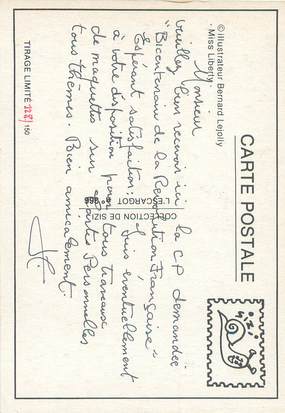 CARTE POSTALE
© illustrateur Bernard Lejolly
- Miss Liberty -
Monsieur
Veuillez bien recevoir ici la CP demandée
"Bicentenaire de la Révolution Française"
Espérant satisfaction; suis éventuellement
à votre disposition pour tous travaux
de maquettes sur cartes Personnelles
tous thèmes. Bien amicalement.
COLLECTION DE SIZI
L'ESCARGOT
TIRAGE LIMITÉ 128/150